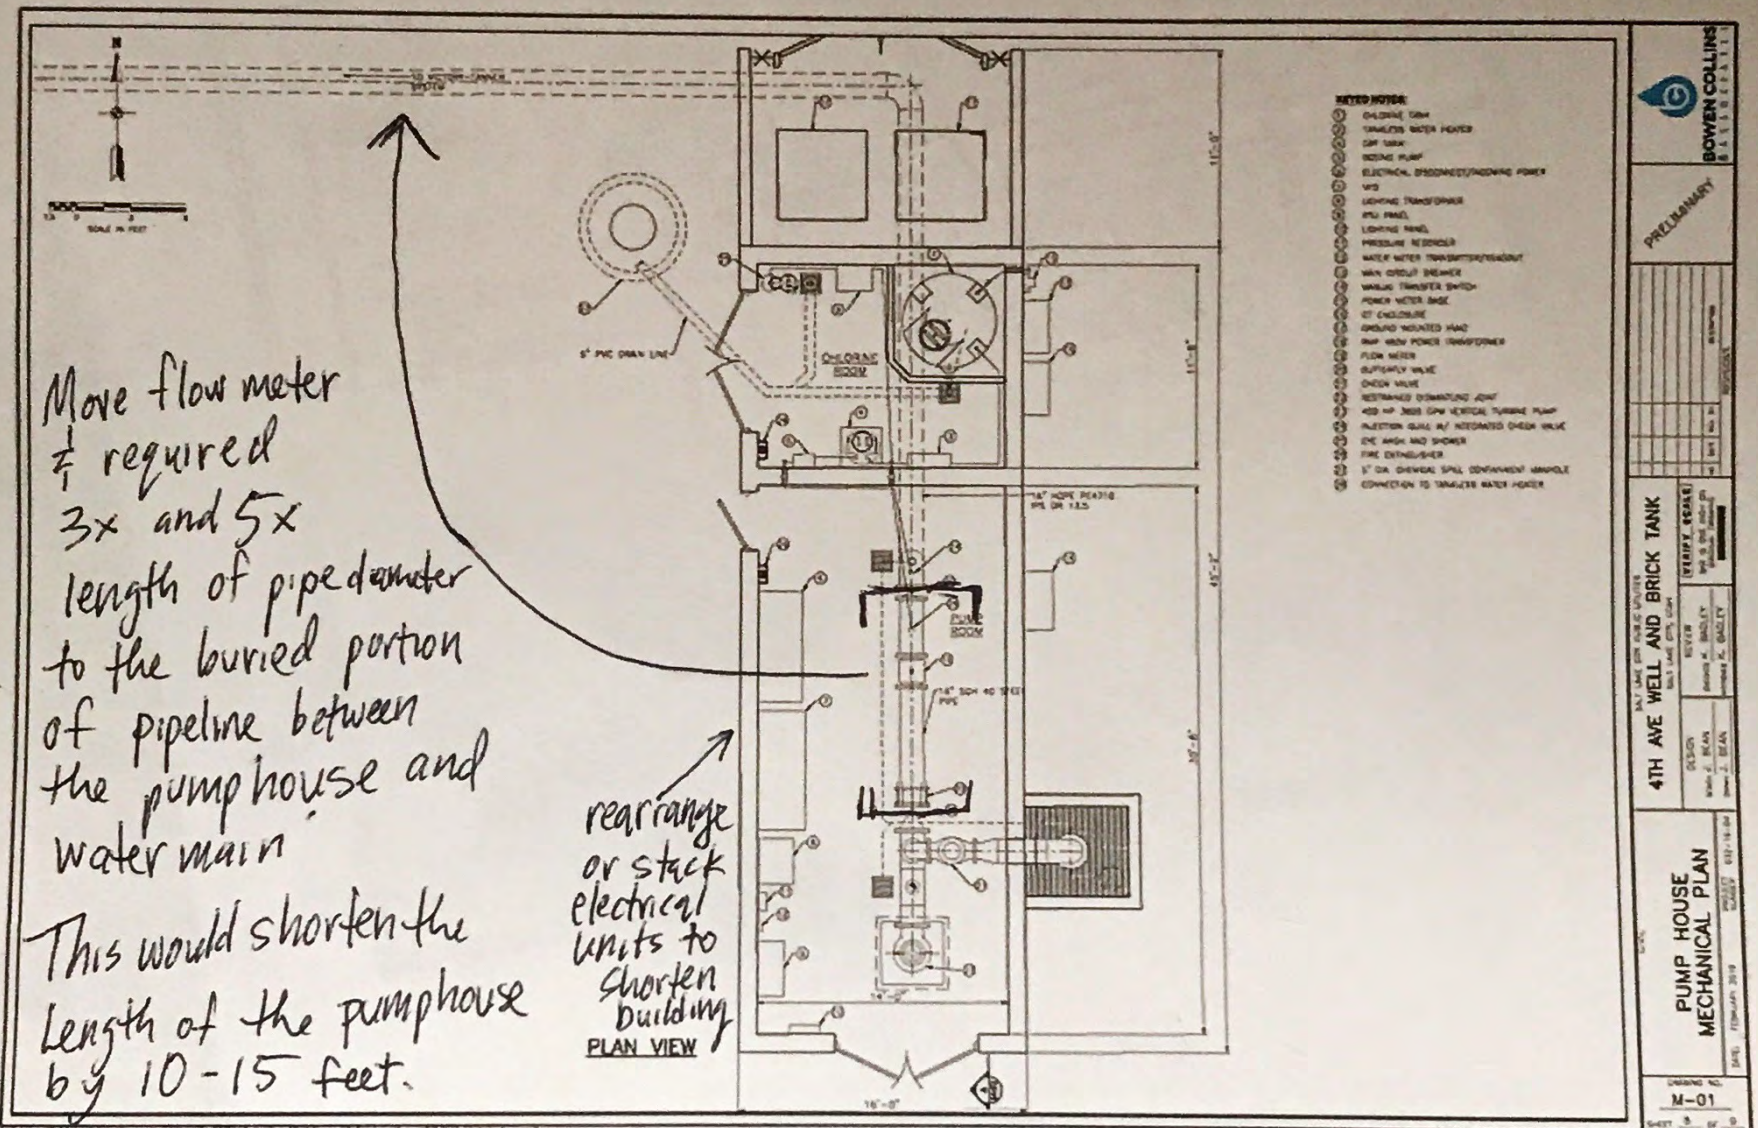 N
SCALE IN FEET
Move flow meter
& required
3x and 5x
length of pipe diameter
to the buried portion
of pipeline between
the pumphouse and
water main
This would shorten the
Length of the pumphouse
by 10-15 feet.
rearrange
or stack
electrical
units to
shorten
building
PLAN VIEW
5" PVC DRAIN LINE
CHLORINE
ROOM
16" HDPE PE4710
IPS DR 13.5
PUMP
ROOM
16" SCH 40 STEEL
PIPE
11'-0"
16'-0"
KEYED NOTES
CHLORINE TANK
TANKLESS WATER HEATER
DAY TANK
DOSING PUMP
ELECTRICAL DISCONNECT/INCOMING POWER
VFD
LIGHTING TRANSFORMER
RTU PANEL
LIGHTING PANEL
PRESSURE RECORDER
WATER METER TRANSMITTER/READOUT
MAIN CIRCUIT BREAKER
MANUAL TRANSFER SWITCH
POWER METER BASE
CT ENCLOSURE
GROUND MOUNTED HVAC
RMP 480V POWER TRANSFORMER
FLOW METER
BUTTERFLY VALVE
CHECK VALVE
RESTRAINED DISMANTLING JOINT
400 HP 3600 GPM VERTICAL TURBINE PUMP
INJECTION QUILL W/ INTEGRATED CHECK VALVE
EYE WASH AND SHOWER
FIRE EXTINGUISHER
5' DIA. CHEMICAL SPILL CONTAINMENT MANHOLE
CONNECTION TO TANKLESS WATER HEATER
BOWEN COLLINS
& ASSOCIATES
PRELIMINARY
REVISIONS
VERIFY SCALE
SALT LAKE CITY PUBLIC UTILITIES
SALT LAKE CITY, UTAH
4TH AVE WELL AND BRICK TANK
DESIGN
REVIEW
J. BEAN
J. BEAN
K. BAGLEY
K. BAGLEY
PUMP HOUSE
MECHANICAL PLAN
DATE: FEBRUARY 2019
DRAWING NO.
M-01
SHEET